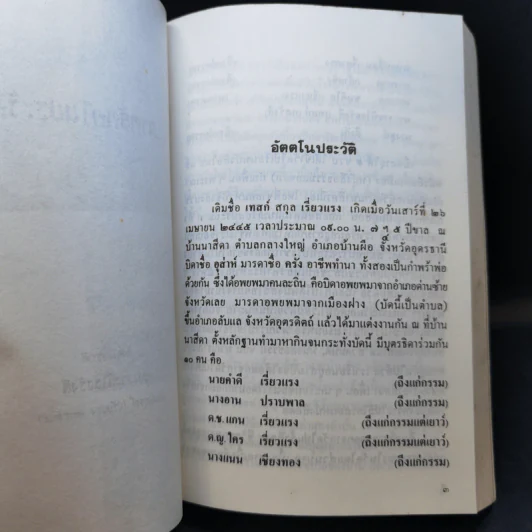 อัตตโนประวัติ
เดิมชื่อ เทสก์ สกุล เรี่ยวแรง เกิดเมื่อวันเสาร์ที่ ๒๖
เมษายน ๒๔๔๕ เวลาประมาณ ๐๙.๐๐ น. ปีขาล ณ
บ้านนาสีดา ตำบลกลางใหญ่ อำเภอบ้านผือ จังหวัดอุดรธานี
บิดาชื่อ อุส่าห์ มารดาชื่อ ครั่ง อาชีพทำนา ทั้งสองเป็นกำพร้าพ่อ
ด้วยกัน ซึ่งได้อพยพมาคนละถิ่น คือบิดาอพยพมาจากอำเภอด่านซ้าย
จังหวัดเลย มารดาอพยพมาจากเมืองฝาง (บัดนี้เป็นตำบล)
ขึ้นอำเภอลับแล จังหวัดอุตรดิตถ์ แล้วได้มาแต่งงานกัน ณ ที่บ้าน
นาสีดา ตั้งหลักฐานทำมาหากินจนกระทั่งบัดนี้ มีบุตรธิดาร่วมกัน
๑๐ คน คือ
นายคำดี เรี่ยวแรง (ถึงแก่กรรม)
นางอาน ปราบพาล (ถึงแก่กรรม)
ด.ช. แกน เรี่ยวแรง (ถึงแก่กรรมแต่เยาว์)
ด.ญ. ใคร เรี่ยวแรง (ถึงแก่กรรมแต่เยาว์)
นางแนน เชียงทอง (ถึงแก่กรรม)